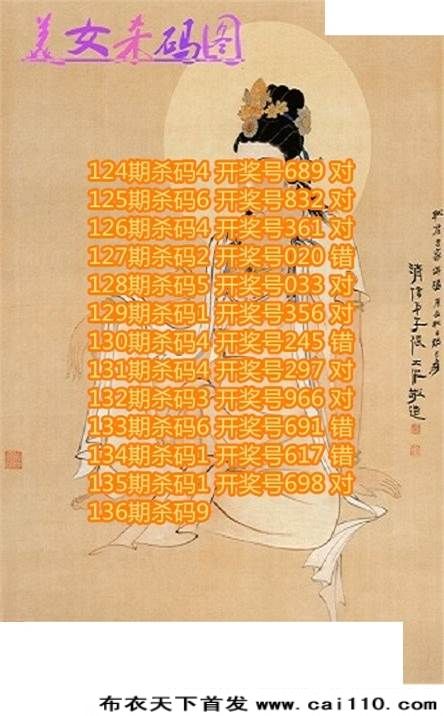 美女杀码图
124期杀码4 开奖号689 对
125期杀码6 开奖号832 对
126期杀码4 开奖号361 对
127期杀码2 开奖号020 错
128期杀码5 开奖号033 对
129期杀码1 开奖号356 对
130期杀码4 开奖号245 错
131期杀码4 开奖号297 对
132期杀码3 开奖号966 对
133期杀码6 开奖号691 错
134期杀码1 开奖号617 错
135期杀码1 开奖号698 对
136期杀码9
布衣天下首发 www.cai110.com